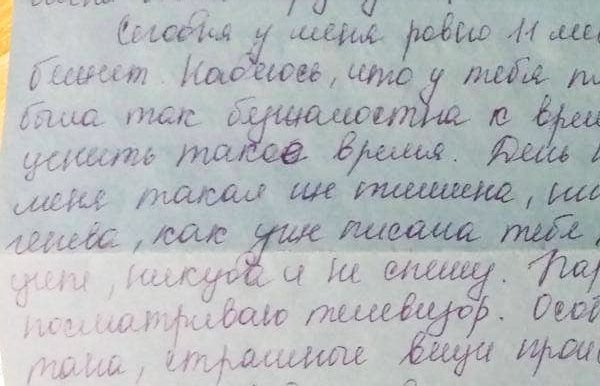 Сегодня у меня ровно 11 ме
бежит. Надеюсь, что у тебя
была так безжалостна к врем
ценить такое время. День
меня такая ин тишина,
как уже писала тебе,
уже, никуда я не спешу. Пар
посматриваю телевизор. Особ
тана, страшные вещи прои